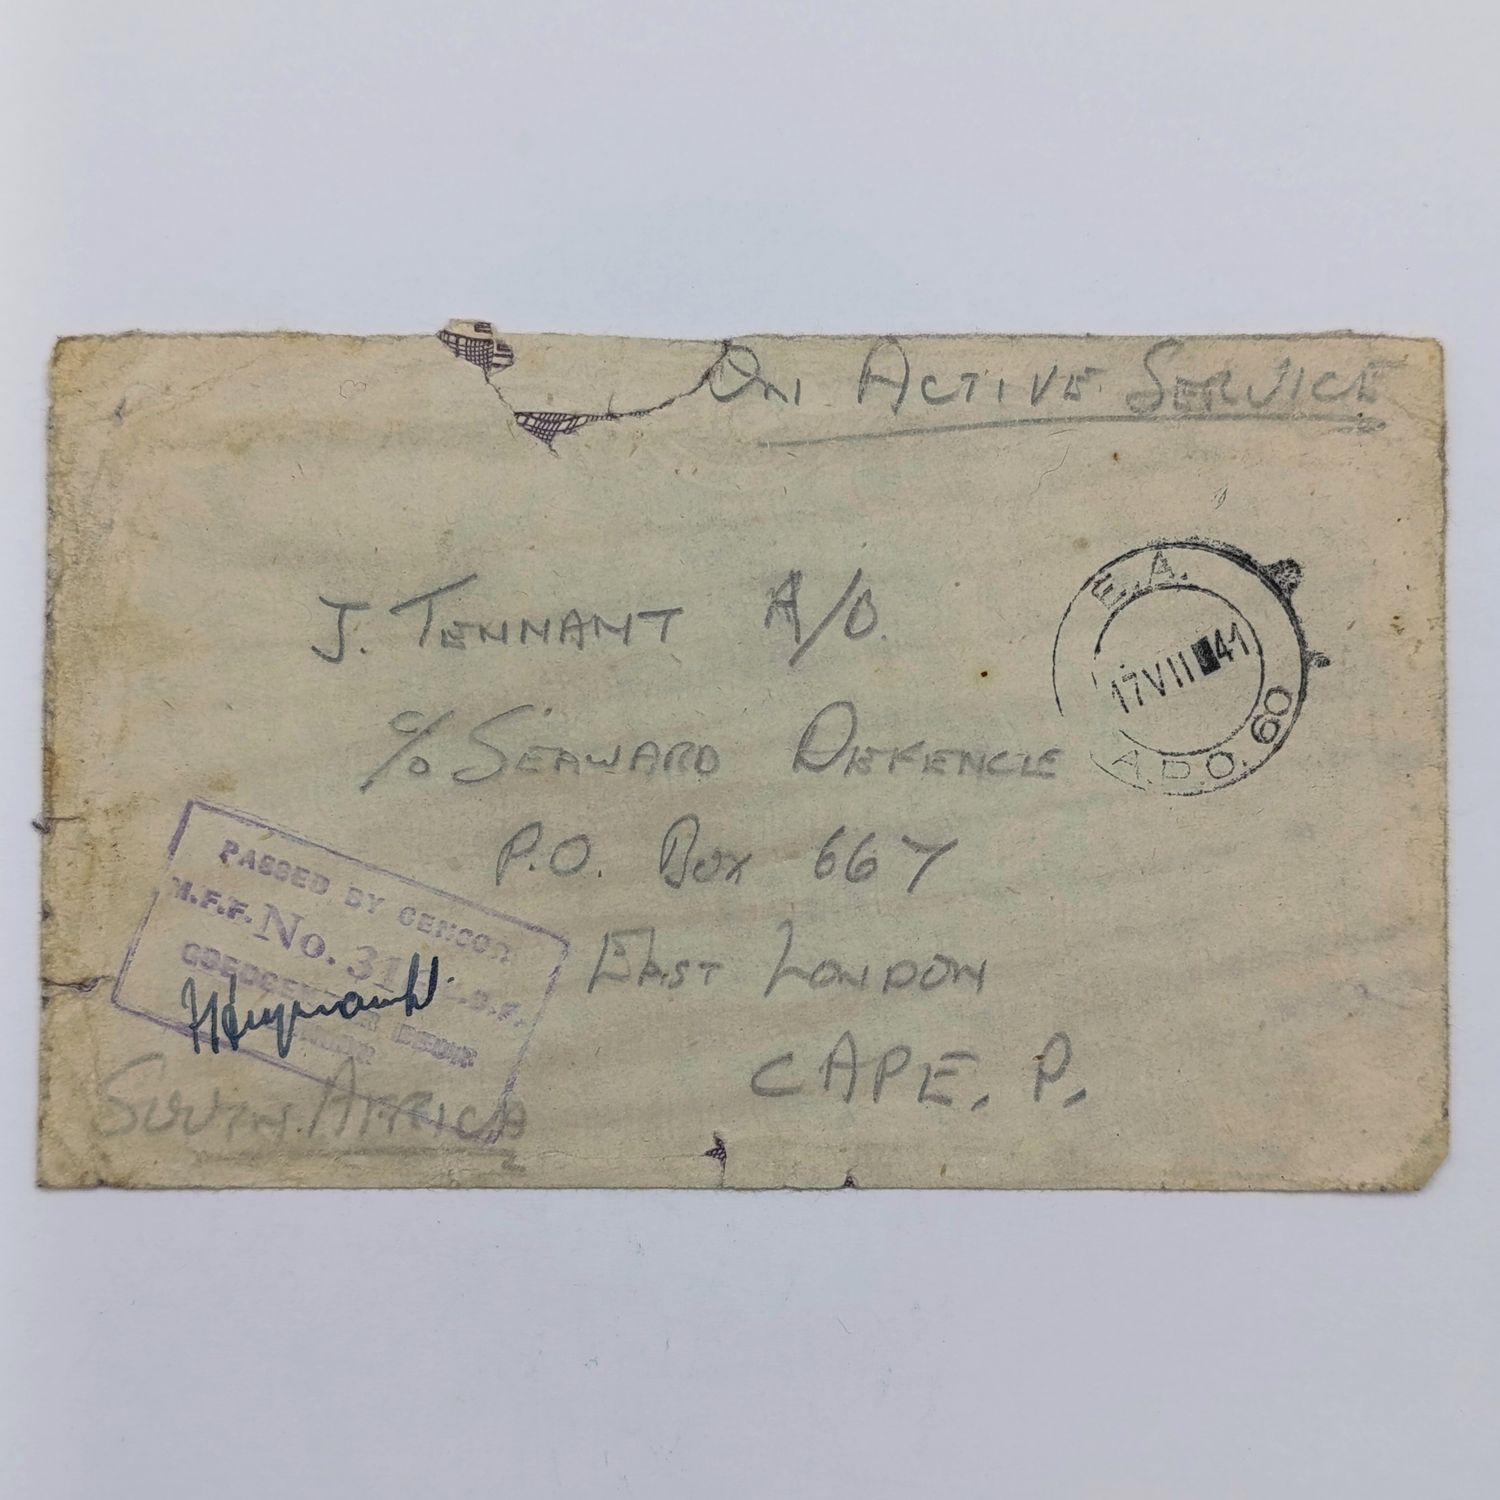 On Active Service
J. Tennant A/B.
c/o Seaward Defence
P.O. Box 667
East London
CAPE. P.
South Africa
E.A.
17 VII 41
A.P.O. 60
PASSED BY CENSOR
M.F.F. No. 31 U.D.F.
GOEDGEKEUR DEUR
SENSOR